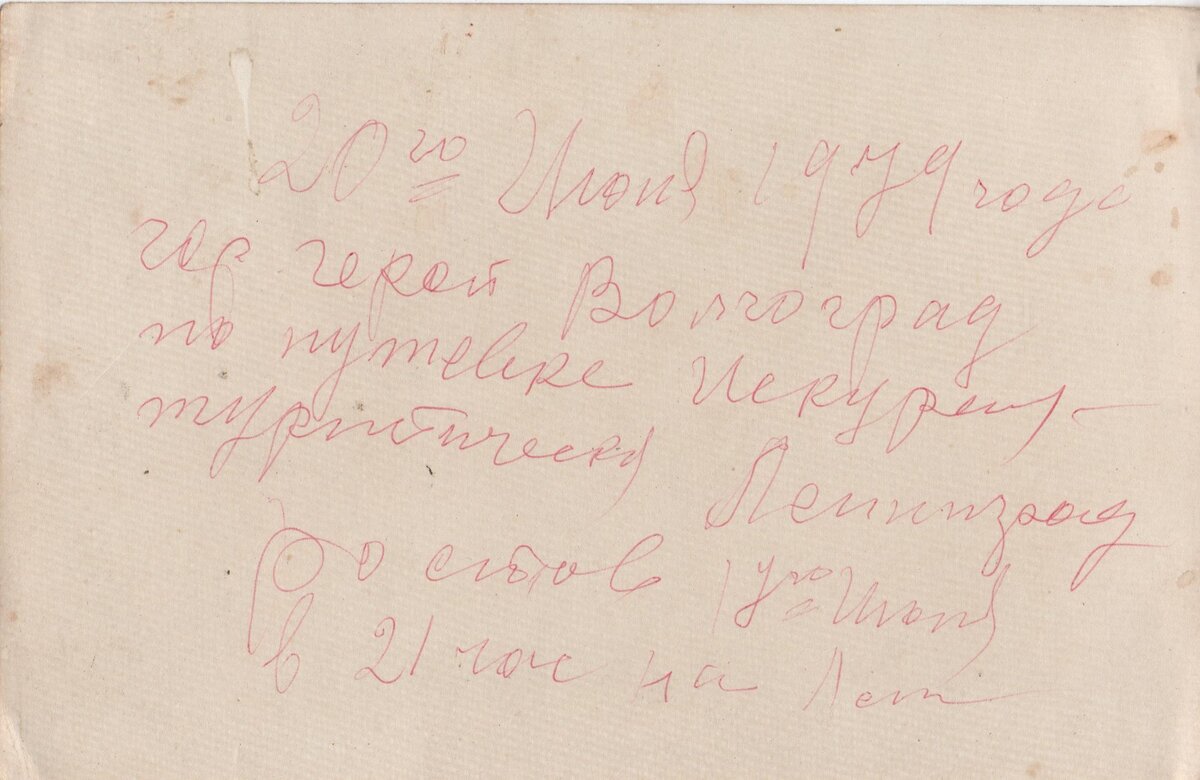 20го Июня 1979 года
гор герой Волгоград
по путевке Искурсия-
туристическя Ленинград
Ростов 17го Июня
в 21 час на